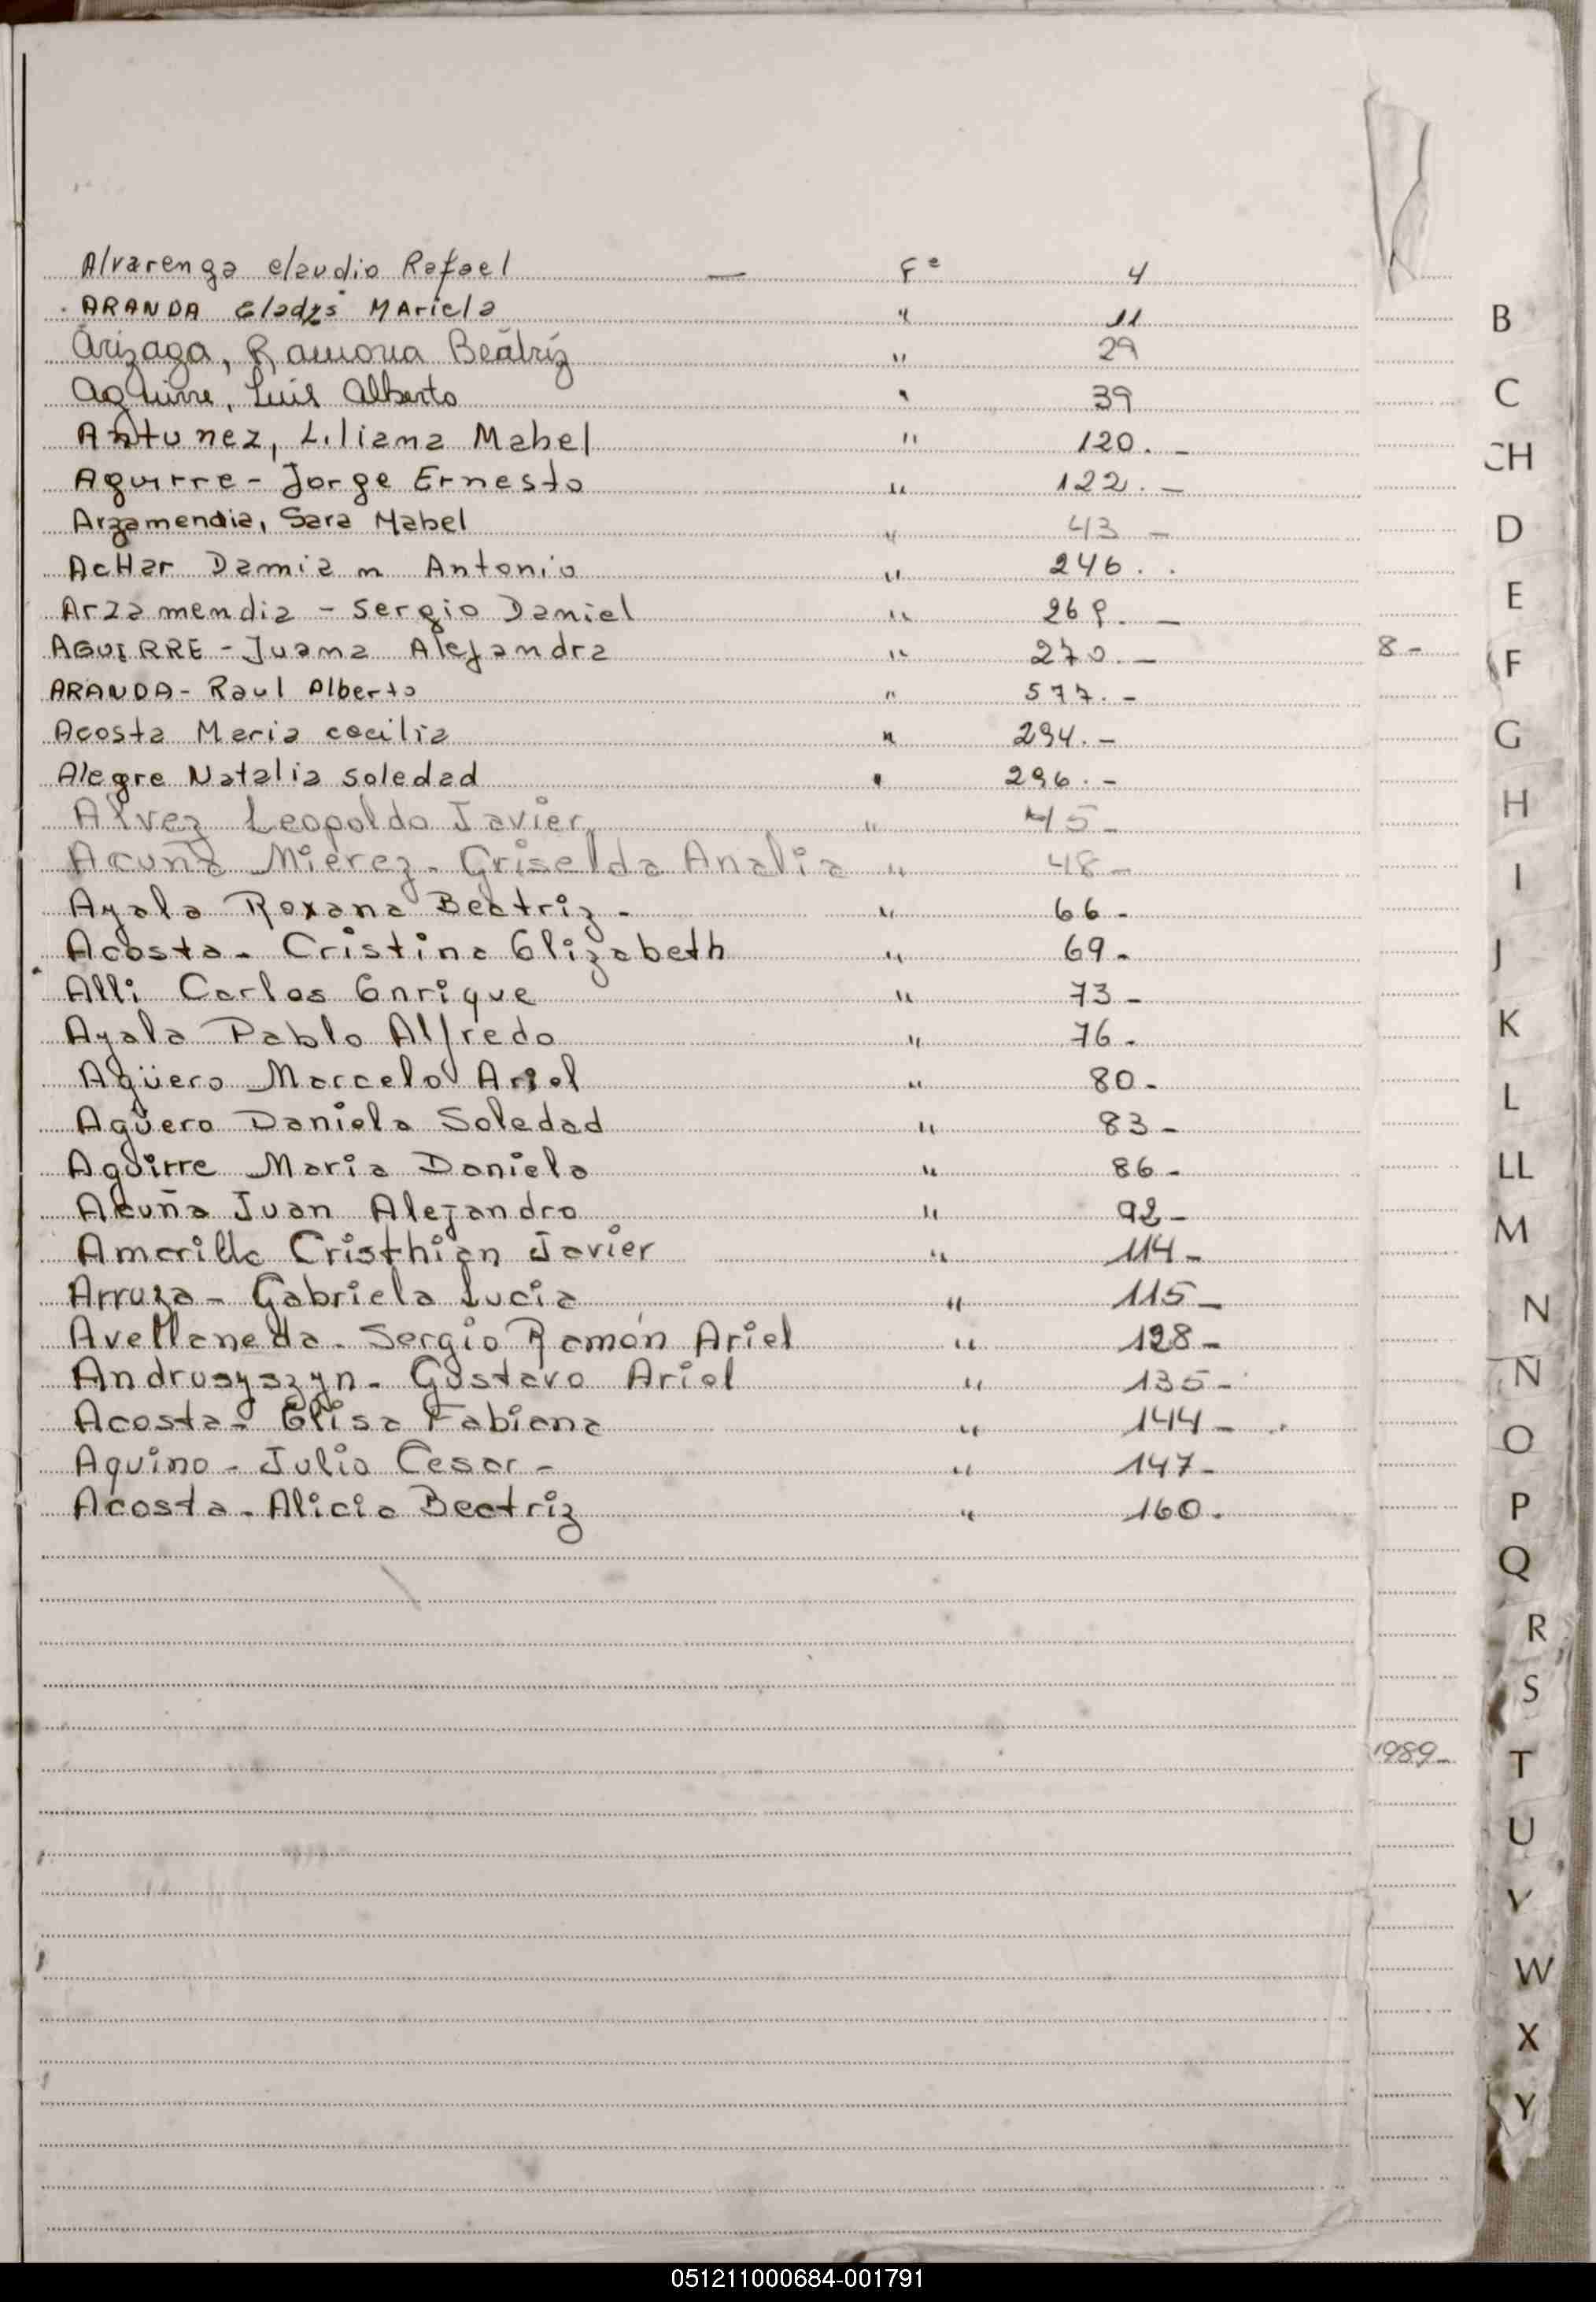 Alvarenga Claudio Rafael — Fº 4
ARANDA Gladys MAriela " 11
B
Arizaga, Ramona Beatríz " 29
Aguirre, Luis Alberto " 39
C
Antunez, Liliana Mabel " 120. -
CH
Aguirre - Jorge Ernesto " 122. -
Arzamendia, Sara Mabel " 43 -
D
AcHar Damian Antonio " 246. .
Arzamendia - Sergio Daniel " 269. -
E
AGUIRRE - Juana Alejandra " 270. - 8 -
F
ARANDA - Raul Alberto " 577. -
Acosta Maria cecilia " 294. -
G
Alegre Natalia soledad " 296. -
Alvez Leopoldo Javier " 45 -
H
Acuña Mierez - Griselda Analia " 48 -
I
Ayala Roxana Beatriz - " 66 -
Acosta - Cristina Elizabeth " 69 -
J
Alli Carlos Enrique " 73 -
Ayala Pablo Alfredo " 76 -
K
Agüero Marcelo Ariel " 80 -
L
Agüero Daniela Soledad " 83 -
Aguirre Maria Daniela " 86 -
LL
Acuña Juan Alejandro " 92 -
M
Amarilla Cristhian Javier " 114 -
Arruza - Gabriela Lucia " 115 -
N
Avellaneda - Sergio Ramón Ariel " 128 -
Andrusyszyn - Gustavo Ariel " 135 -
Ñ
Acosta - Elisa Fabiana " 144 -
O
Aquino - Julio Cesar - " 147 -
Acosta - Alicia Beatriz " 160.
P
Q
R
S
1989 -
T
U
V
W
X
Y
051211000684-001791